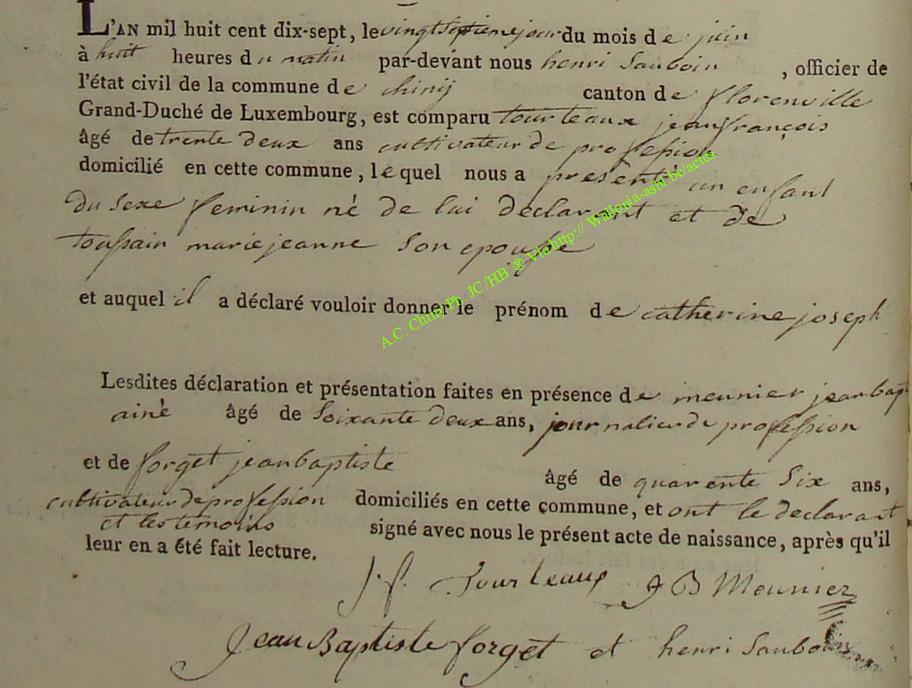 L'AN mil huit cent dix-sept, le vingt septieme jour du mois de juin
à huit heures du matin par-devant nous henri Sauboin, officier de
l'état civil de la commune de chinij canton de florenville
Grand-Duché de Luxembourg, est comparu tourteaux jeanfrançois
âgé de trente deux ans cultivateur de profession
domicilié en cette commune, lequel nous a presenté un enfant
du sexe feminin né de lui declarant et de
toussain mariejeanne son epouse
et auquel il a déclaré vouloir donner le prénom de catherine joseph
Lesdites déclaration et présentation faites en présence de meunier jean bap
ainé âgé de soixante deux ans, journalier de profession
et de forget jeanbaptiste âgé de quarente six ans,
cultivateur de profession domiciliés en cette commune, et ont le declarant
et les temoins signé avec nous le présent acte de naissance, après qu'il
leur en a été fait lecture.
j. f. Tourteaux J B Meunier
Jean Baptiste forget et henri Sauboin
A.C. Chiny Ph. JC/HB @ Via http:// Wallonia-asbl-be/actes